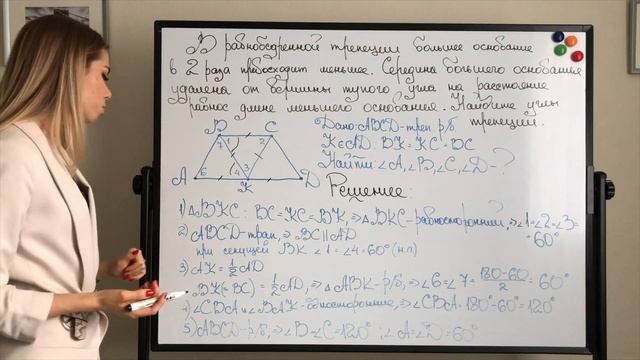 В равнобедренной трапеции большее основание
в 2 раза превосходит меньшее. Середина большего основания
удалена от вершины тупого угла на расстояние
равное длине меньшего основания. Найдите углы
трапеции.
Дано: ABCD-трап р/б,
K∈AD: BK = KC = BC
Найти: ∠A, ∠B, ∠C, ∠D - ?
B C
7 1 2
A 6 4 3 D
K
Решение:
1) △BKC: BC = KC = BK, ⇒ △BKC-равносторонний, ⇒ ∠1=∠2=∠3=
=60°
2) ABCD-трап, ⇒ BC || AD
при секущей BK ∠1 = ∠4 = 60° (н.л)
3) AK = 1/2 AD
BK(=BC) = 1/2 AD, ⇒ △ABK-р/б, ⇒ ∠6 = ∠7 = 180-60/2 = 60°
4) ∠CBA и ∠BAK-односторонние, ⇒ ∠CBA = 180°-60° = 120°
5) ABCD-р/б, ⇒ ∠B = ∠C = 120°; ∠A = ∠D = 60°